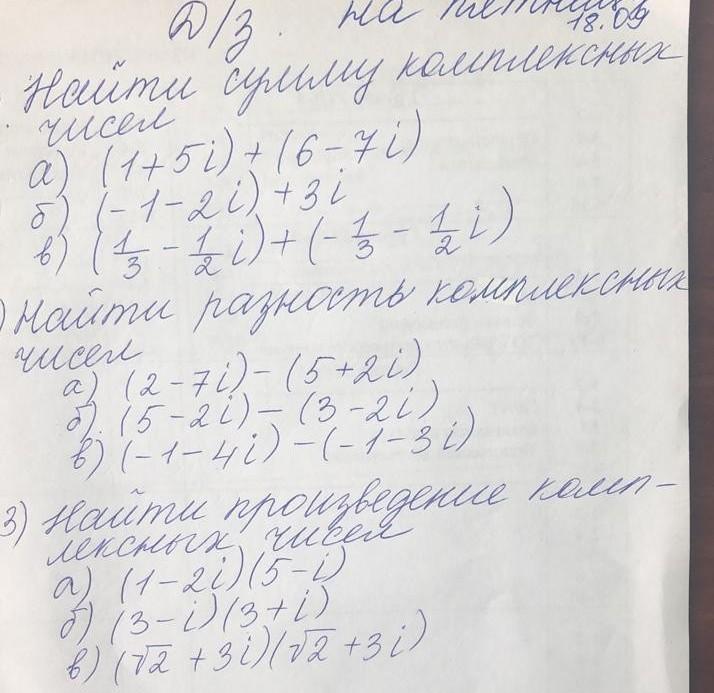 Д/з. на пятницу
18.09
Найти сумму комплексных
чисел
а) (1+5i)+(6-7i)
б) (-1-2i)+3i
в) (1/3 - 1/2 i)+(-1/3 - 1/2 i)
) Найти разность комплексных
чисел
а) (2-7i)-(5+2i)
б) (5-2i)-(3-2i)
в) (-1-4i)-(-1-3i)
3) Найти произведение комп-
лексных чисел
а) (1-2i)(5-i)
б) (3-i)(3+i)
в) (√2+3i)(√2+3i)